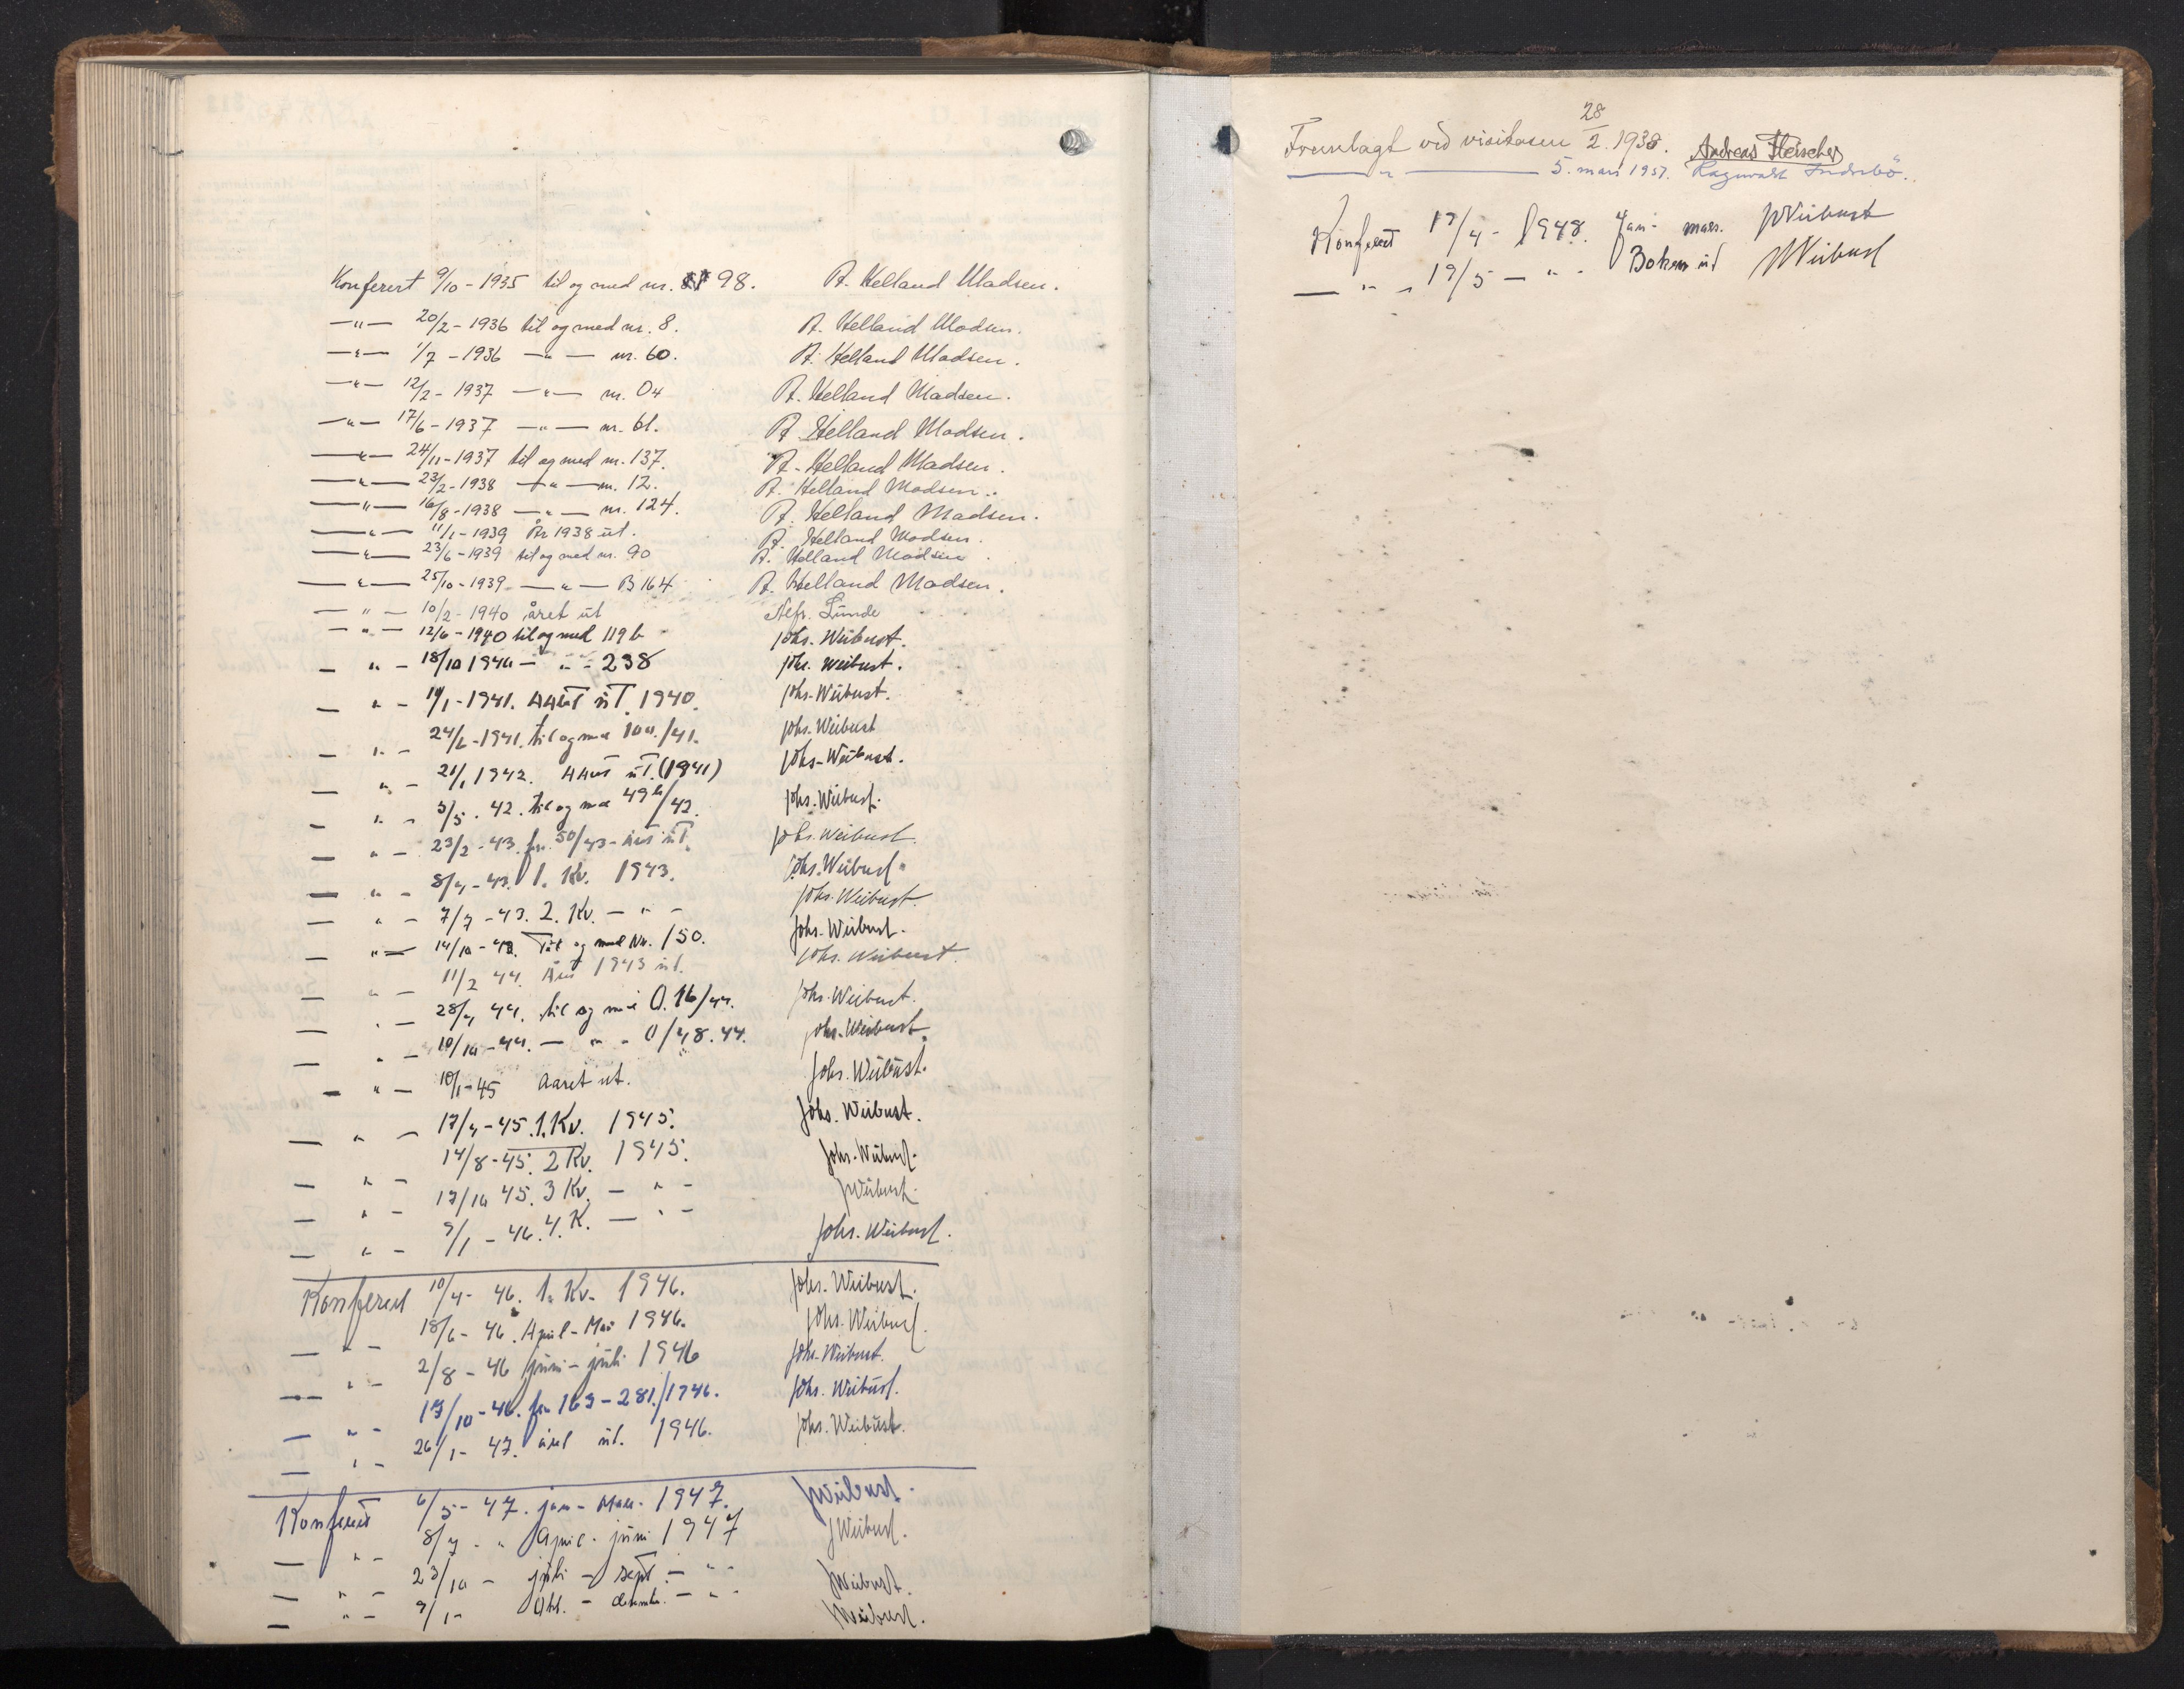 Konferert 9/10 - 1935 til og med nr. 98. A. Helland Madsen.
—"— 20/2 - 1936 til og med nr. 8. A. Helland Madsen.
—"— 1/7 - 1936 —"— nr. 60. A. Helland Madsen.
—"— 12/2 - 1937 —"— nr. 04 A. Helland Madsen.
—"— 17/6 - 1937 —"— nr. 61. A. Helland Madsen.
—"— 24/11 - 1937 til og med nr. 137. A. Helland Madsen.
—"— 23/2 - 1938 —"— nr. 12. A. Helland Madsen.
—"— 16/8 - 1938 —"— nr. 124. A. Helland Madsen.
—"— 11/1 - 1939 År 1938 ut. A. Helland Madsen.
—"— 23/6 - 1939 til og med nr. 90 A. Helland Madsen
—"— 25/10 - 1939 —"— B 164 A. Helland Madsen.
—"— 10/2 - 1940 året ut Lunde
—"— 12/6 - 1940 til og med 119 b Johs. Weibust.
—"— 18/10 1940 —"— 238 Johs. Weibust.
—"— 1/1 - 1941. Aaret ut 1940. Johs. Weibust.
—"— 24/6 - 1941. til og med 100/41. Johs. Weibust
—"— 21/1 1942. Aaret ut. (1941) Johs. Weibust.
—"— 5/5. 42. til og med 49 b/42. Johs. Weibust.
—"— 23/2 - 43. fra 50/43 - året ut. Johs. Weibust.
—"— 8/4 - 43. 1. Kv. 1943. Johs. Weibust.
—"— 7/7 - 43. 2. Kv. —"— Johs. Weibust.
—"— 14/10 - 43. Til og med Nr. 150. Johs. Weibust.
—"— 11/2 44. Året 1943 ut. Johs. Weibust.
—"— 28/4 44. til og med O. 16/44. Johs. Weibust.
—"— 10/10 - 44. —"— O/48. 44. Johs. Weibust.
—"— 10/1 - 45 Aaret ut. Johs. Weibust.
—"— 17/4 - 45. 1. Kv. 1945. Johs. Weibust.
—"— 14/8 - 45. 2 Kv. 1945. Johs. Weibust.
—"— 17/10 45. 3 Kv. —"— JWeibust.
—"— 9/1 - 46. 4. K. —"— Johs. Weibust.
Konferert 10/4 - 46. 1. Kv. 1946. Johs. Weibust.
—"— 18/6 - 46. April - Mai 1946. Johs. Weibust.
—"— 2/8 - 46 juni - juli 1946 Johs. Weibust.
—"— 17/10 - 46. fra 169 - 281/1946. Johs. Weibust.
—"— 26/1 - 47. året ut. 1946. Johs. Weibust.
Konferert 6/5 - 47. jan - Mars. 1947. JWeibust.
—"— 8/7 - " April - juni 1947 JWeibust.
—"— 23/10 - juli - sept. —"— JWeibust.
—"— 9/1 - Okt. - desember. —"— JWeibust.
Fremlagt ved visitasen 28/2. 1938. Andreas Fleischer
—"— 5. mars 1957. Ragnvald Indrebö.
Konferert 17/4 - 1948. Jan - mars. JWeibust
—"— 19/5 —"— Boken ut JWeibust